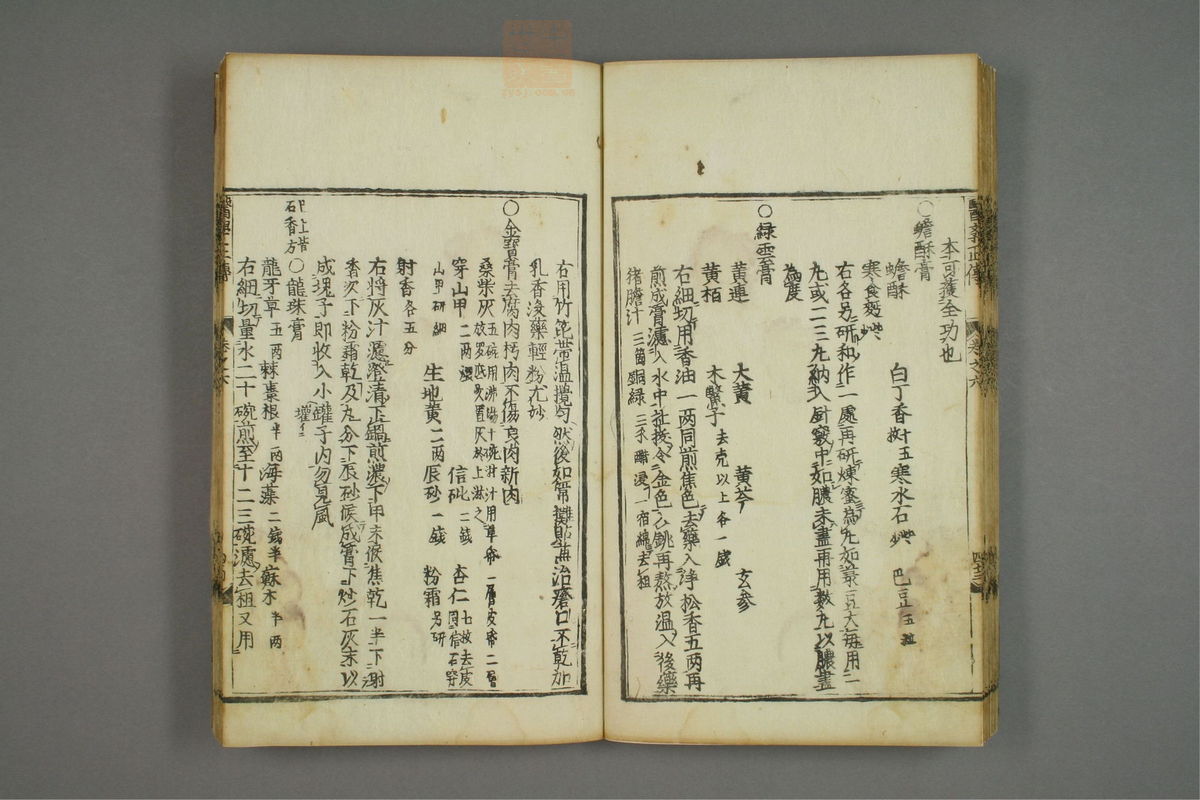 本可獲全功也
○蟾酥膏
蟾酥 白丁香十五枚 寒水石些少 巴豆五粒
寒食麪些少
右各另研和作一處再研煉蜜為丸如菉豆大每用一
丸或二三丸納入針竅中如膿未盡再用數丸以膿盡
為度
○綠雲膏
黃連 大黃 黃芩 玄參
黃栢 木鱉子去壳以上各一錢
右細切用香油一兩同煎焦色去藥入淨松香五兩再
煎成膏濾入水中扯拔令金色入銚再熬放溫入後藥
猪膽汁三箇 銅綠三錢醋浸一宿絹去柤
右用竹篦帶溫攪匀然後如常攤貼其治瘡口不乾加
乳香沒藥輕粉尤妙
○金寶膏去腐肉朽肉不傷良肉新肉
桑柴灰五碗用沸湯十碗淋汁用草帋一層皮帋二層放罗底次置灰於上淋之
穿山甲二兩煨 信砒二錢 杏仁七枚去皮同信石穿
山甲研細 生地黃二兩 辰砂一錢 粉霜另研
射香各五分
右將灰汁濾澄清下鍋煎濃下甲末候焦乾一半下射
香次下粉霜乾及九分下辰砂候成膏下炒石灰末以
成塊子即收入小罐子內勿見風
○龍珠膏
龍牙草五兩 棘棗根半兩 海藻二錢半 蘇木半兩
右細切量水二十碗煎至十二三碗濾去柤又用